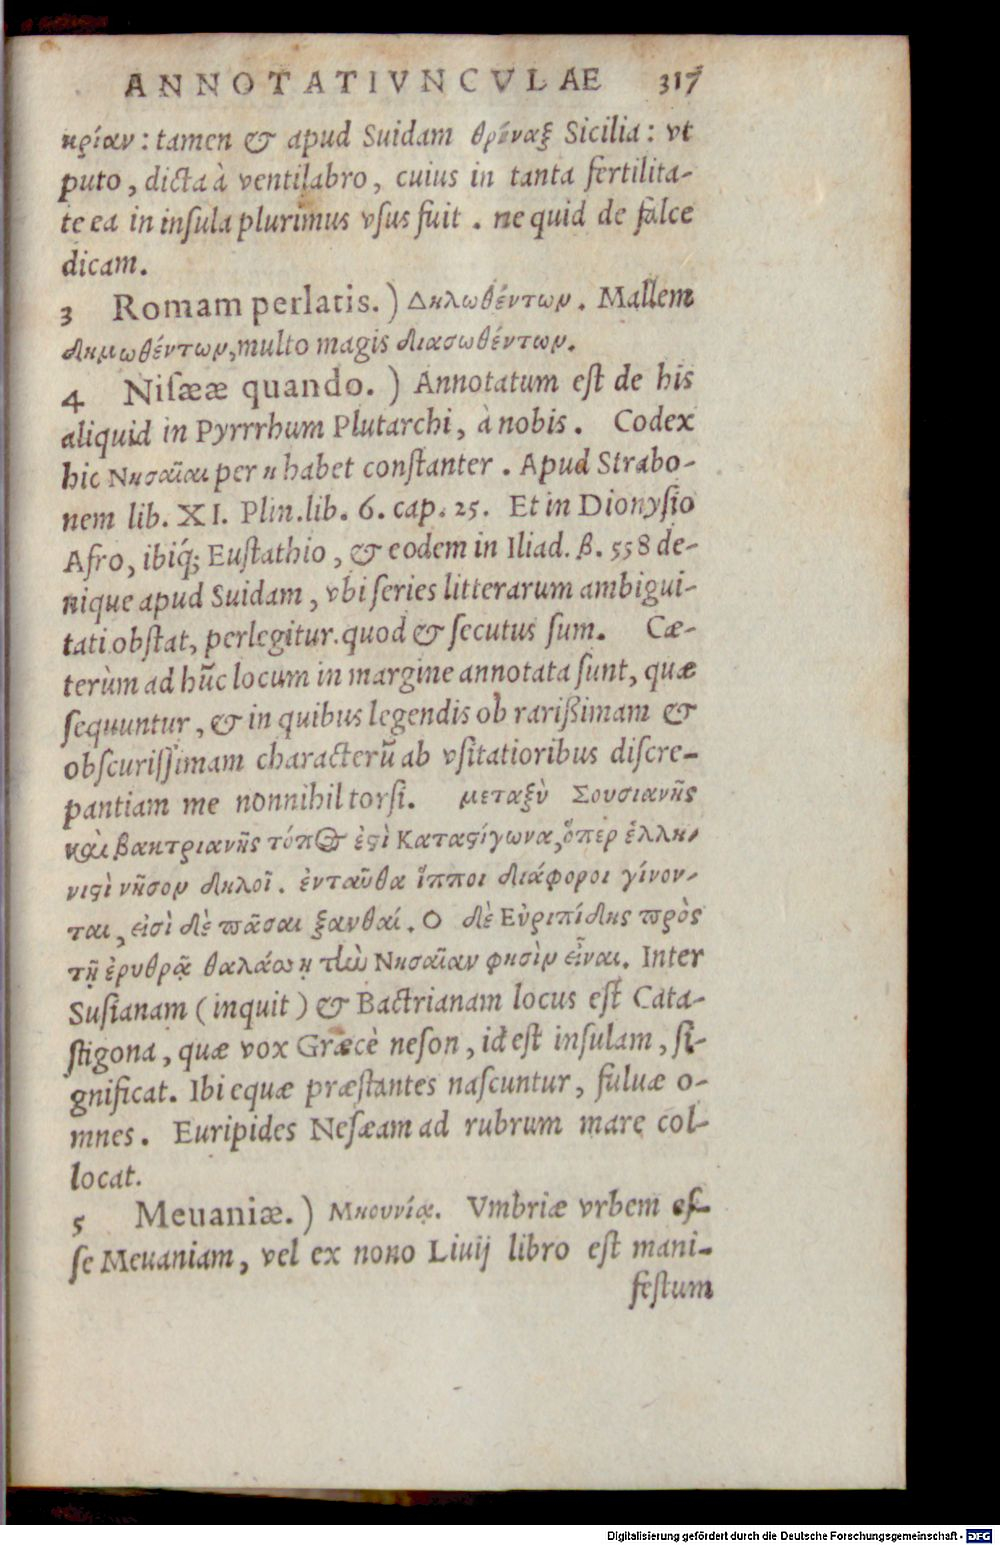 ANNOTATIVNCVLAE 317
κρίαν: tamen & apud Suidam θρίναξ Sicilia: vt
puto, dicta à ventilabro, cuius in tanta fertilita-
te ea in inſula plurimus vſus fuit. ne quid de falce
dicam.
3 Romam perlatis.) Δηλωθέντων. Mallem
δημωθέντων, multo magis διασωθέντων.
4 Niſææ quando.) Annotatum eſt de his
aliquid in Pyrrrhum Plutarchi, à nobis. Codex
hic Νησαῖαι per η habet conſtanter. Apud Strabo-
nem lib. XI. Plin. lib. 6. cap. 25. Et in Dionyſio
Afro, ibiq́; Euſtathio, & eodem in Iliad. β. 558 de-
nique apud Suidam, vbi ſeries litterarum ambigui-
tati obſtat, perlegitur. quod & ſecutus ſum. Cæ-
terùm ad hūc locum in margine annotata ſunt, quæ
ſequuntur, & in quibus legendis ob rariſſimam &
obſcuriſſimam characterū ab vſitatioribus diſcre-
pantiam me nonnihil torſi. μεταξὺ Σουσιανῆς
καὶ βακτριανῆς τόπος ἐϛὶ Καταϛίγωνα, ὅπερ ἑλλη-
νιϛὶ νῆσον δηλοῖ. ἐνταῦθα ἵπποι διάφοροι γίνον-
ται, εἰσὶ δὲ πᾶσαι ξανθαί. Ο δὲ Εὐριπίδης πρὸς
τῇ ἐρυθρᾷ θαλάσσῃ τὴν Νησαῖαν φησὶν εἶναι. Inter
Suſianam (inquit) & Bactrianam locus eſt Cata-
ſtigona, quæ vox Græcè neſon, id eſt inſulam, ſi-
gnificat. Ibi equæ præſtantes naſcuntur, fuluæ o-
mnes. Euripides Neſæam ad rubrum mare col-
locat.
5 Meuaniæ.) Μηουνίας. Vmbriæ vrbem eſ-
ſe Meuaniam, vel ex nono Liuij libro eſt mani-
feſtum
Digitalisierung gefördert durch die Deutsche Forschungsgemeinschaft - DFG